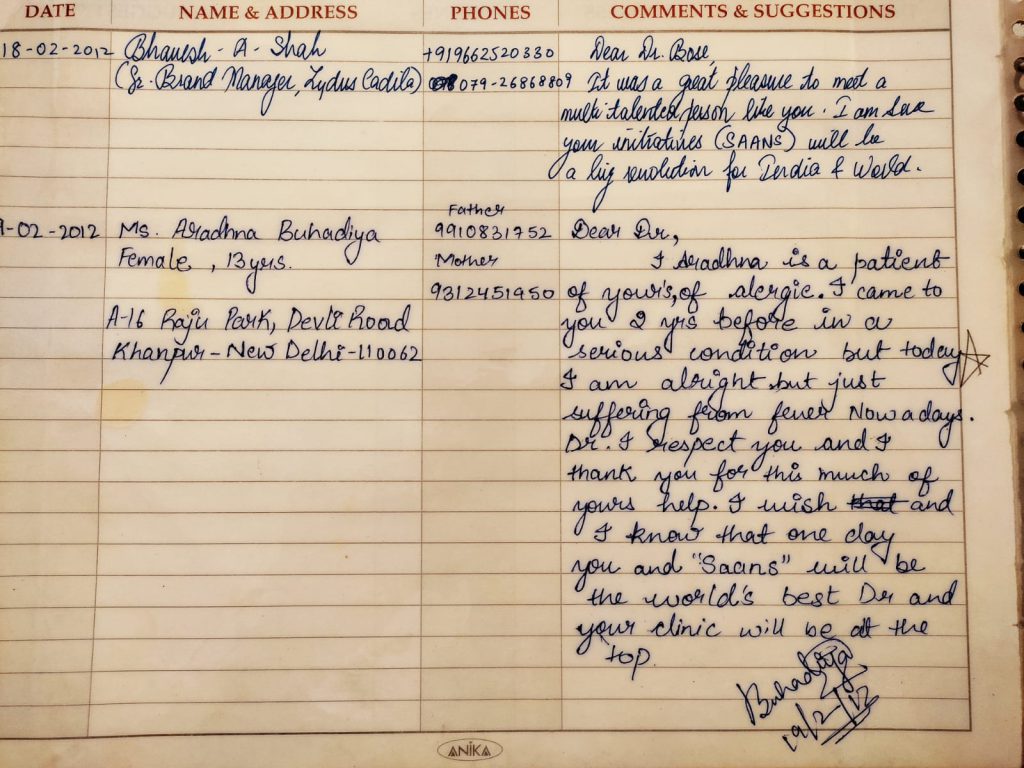 DATE NAME & ADDRESS PHONES COMMENTS & SUGGESTIONS
18-02-2012 Bhavesh - A - Shah +919662520330 Dear Dr. Bose,
(Sr. Brand Manager, Zydus Cadila) 079-26868809 It was a great pleasure to meet a
multi talented person like you. I am sure
your initiatives (SAANS) will be
a big revolution for India & World.
Father
9-02-2012 Ms. Aradhna Buhadiya 9910831752 Dear Dr,
Female , 13 yrs. Mother I Aradhna is a patient
9312451950 of your's, of alergic. I came to
A-16 Raju Park, Devli Road you 2 yrs before in a
Khanpur - New Delhi-110062 serious condition but today
I am alright but just
suffering from fever Now a days.
Dr. I respect you and I
thank you for this much of
yours help. I wish that and
I know that one day
you and "Saans" will be
the world's best Dr and
your clinic will be at the
top.
Buhadiya
19/2/12
ANIKA